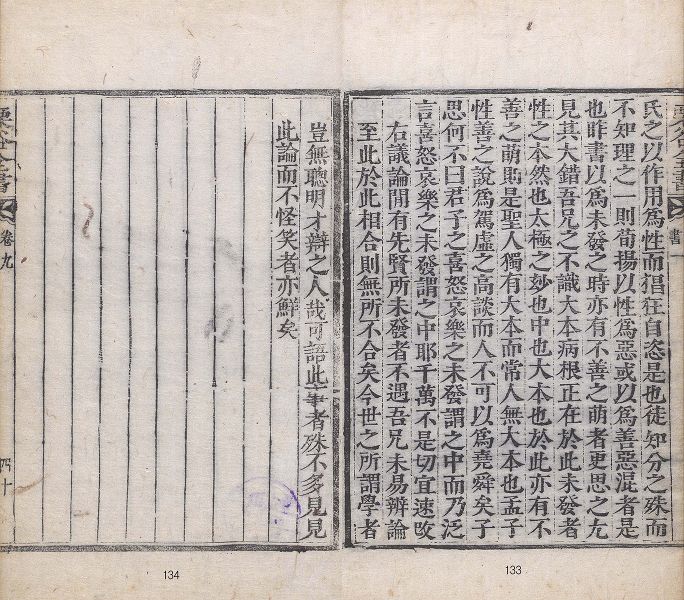 氏之以作用爲性而猖狂自恣是也徒知分之殊而
不知理之一則荀揚以性爲惡或以爲善惡混者是
也昨書以爲未發之時亦有不善之萌者更思之尤
見其大錯吾兄之不識大本病根正在於此未發者
性之本然也太極之妙也中也大本也於此亦有不
善之萌則是聖人獨有大本而常人無大本也孟子
性善之說爲駕虛之高談而人不可以爲堯舜矣子
思何不曰君子之喜怒哀樂之未發謂之中而乃泛
言喜怒哀樂之未發謂之中耶千萬不是切宜速改
右議論開有先賢所未發者不遇吾兄未易辯論
至此於此相合則無所不合矣今世之所謂學者
書一
133
豈無聰明才辯之人哉可語此事者殊不多見見
此論而不怪笑者亦鮮矣
栗谷全書
卷九
四十
134